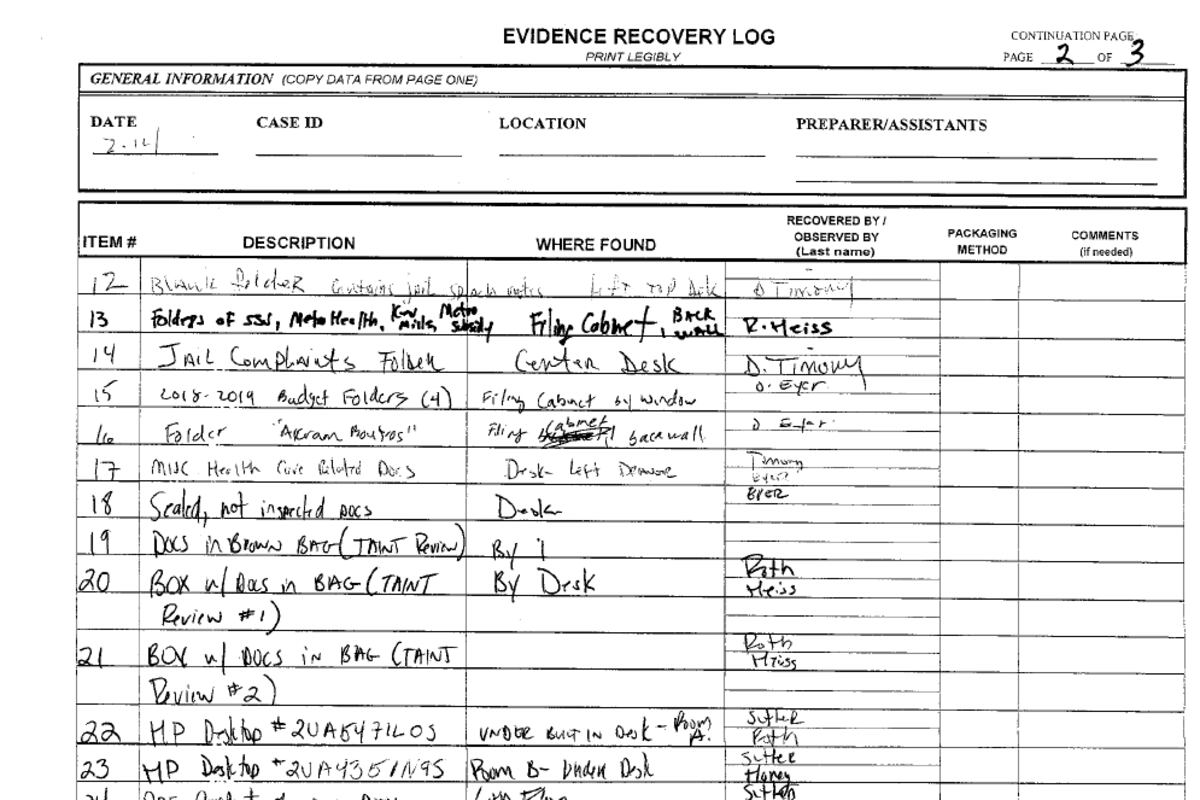 EVIDENCE RECOVERY LOG
PRINT LEGIBLY
CONTINUATION PAGE
PAGE 2 OF 3
GENERAL INFORMATION (COPY DATA FROM PAGE ONE)
DATE CASE ID LOCATION PREPARER/ASSISTANTS
ITEM # DESCRIPTION WHERE FOUND RECOVERED BY / OBSERVED BY (Last name) PACKAGING METHOD COMMENTS (if needed)
12 Blank folder contains jail notes Left top desk D Timony
13 Folders of SSS, Metro Health, Metro subsidy Filing Cabinet, BACK WALL R. Meiss
14 JAIL Complaints Folder Center Desk D. Timony
15 2018-2019 Budget Folders (4) Filing Cabinet by window D. Eyer
16 Folder "Akram Boutros" Filing Cabinet back wall D Eyer
17 MISC Health Care Related Docs Desk- Left Timony
Eyer
18 Sealed, not inspected DOCS Desk EYER
19 DOCS in Brown BAG (TAINT Review) By
20 BOX w/ Docs in BAG (TAINT By Desk Roth
Meiss
Review #1)
21 BOX w/ DOCS in BAG (TAINT Roth
Meiss
Review #2)
22 HP Desktop # 2UA5471L0S UNDER BUILT IN Desk - Room A. Sutter
Roth
23 HP Desktop #2UA4351N9S Room B- Under Desk Sutter